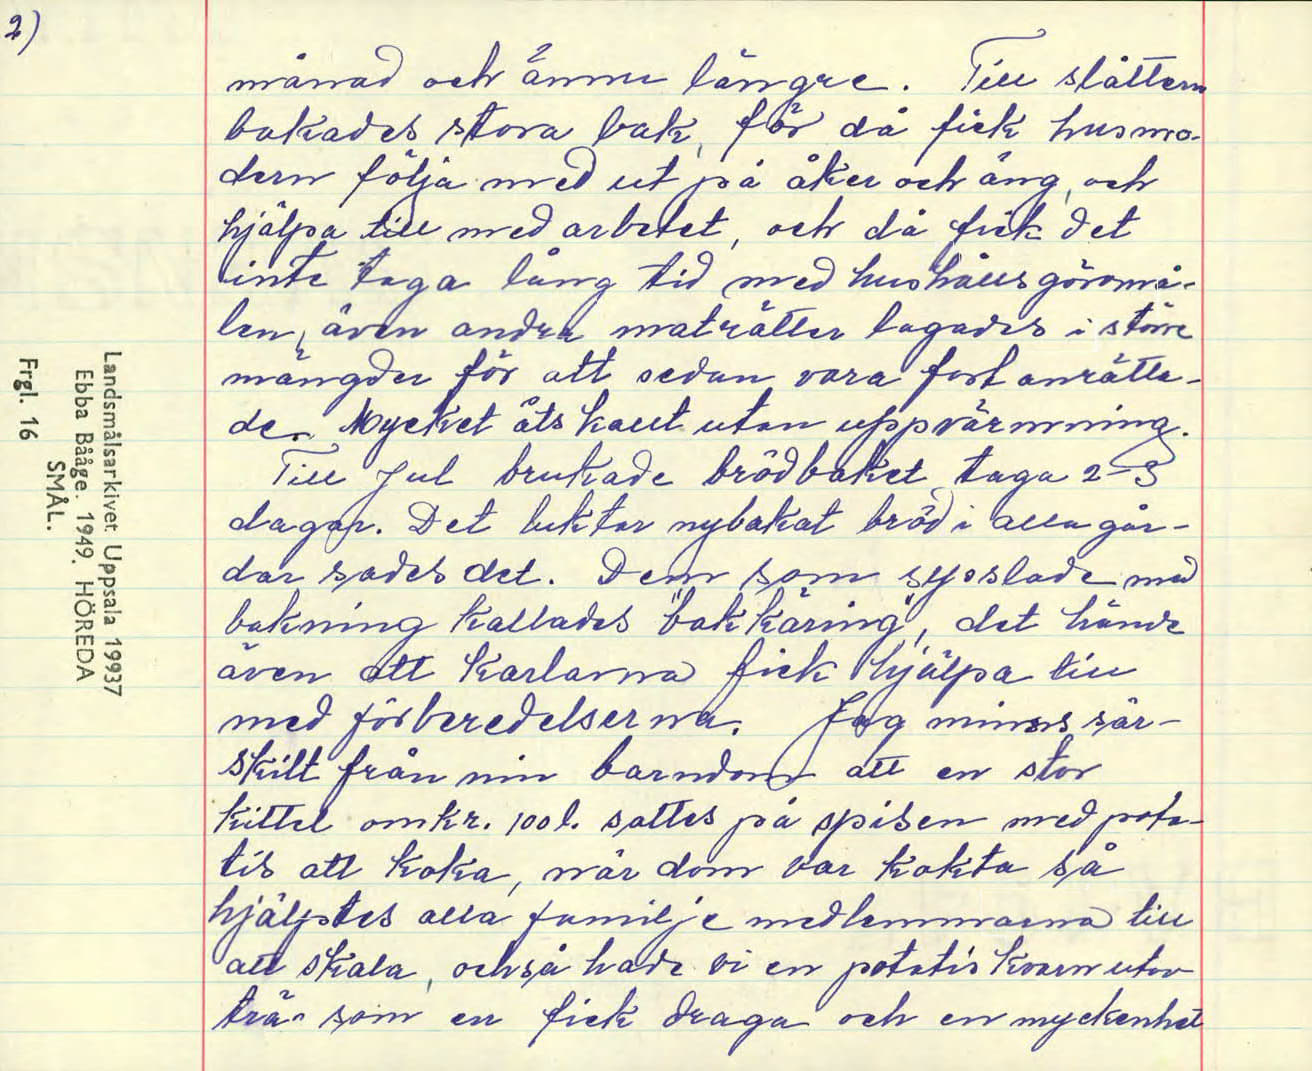 2)
månad och ännu längre. Till slåttern
bakades stora bak, för då fick husmo-
dern följa med ut på åker och äng, och
hjälpa till med arbetet, och då fick det
inte taga lång tid med hushållsgöromå-
len, även andra maträtter lagades i större
mängder för att sedan vara fort anrätta-
de. Mycket åts kallt utan uppvärmning.
Till Jul brukade brödbaket taga 2-3
dagar. Det luktar nybakat bröd i alla går-
dar sades det. Dem som sysslade med
bakning kallades "bakkäring", det hände
även att karlarna fick hjälpa till
med förberedelserna. Jag minns sär-
skilt från min barndom att en stor
kittel omkr. 100 l. sattes på spisen med pota-
tis att koka, när dom var kokta så
hjälptes alla familjemedlemmarna till
att skala, och så hade vi en potatiskvarn utav
trä som en fick draga och en myckenhet
Landsmålsarkivet Uppsala 19937
Ebba Bååge. 1949. HÖREDA
SMÅL.
Frgl. 16